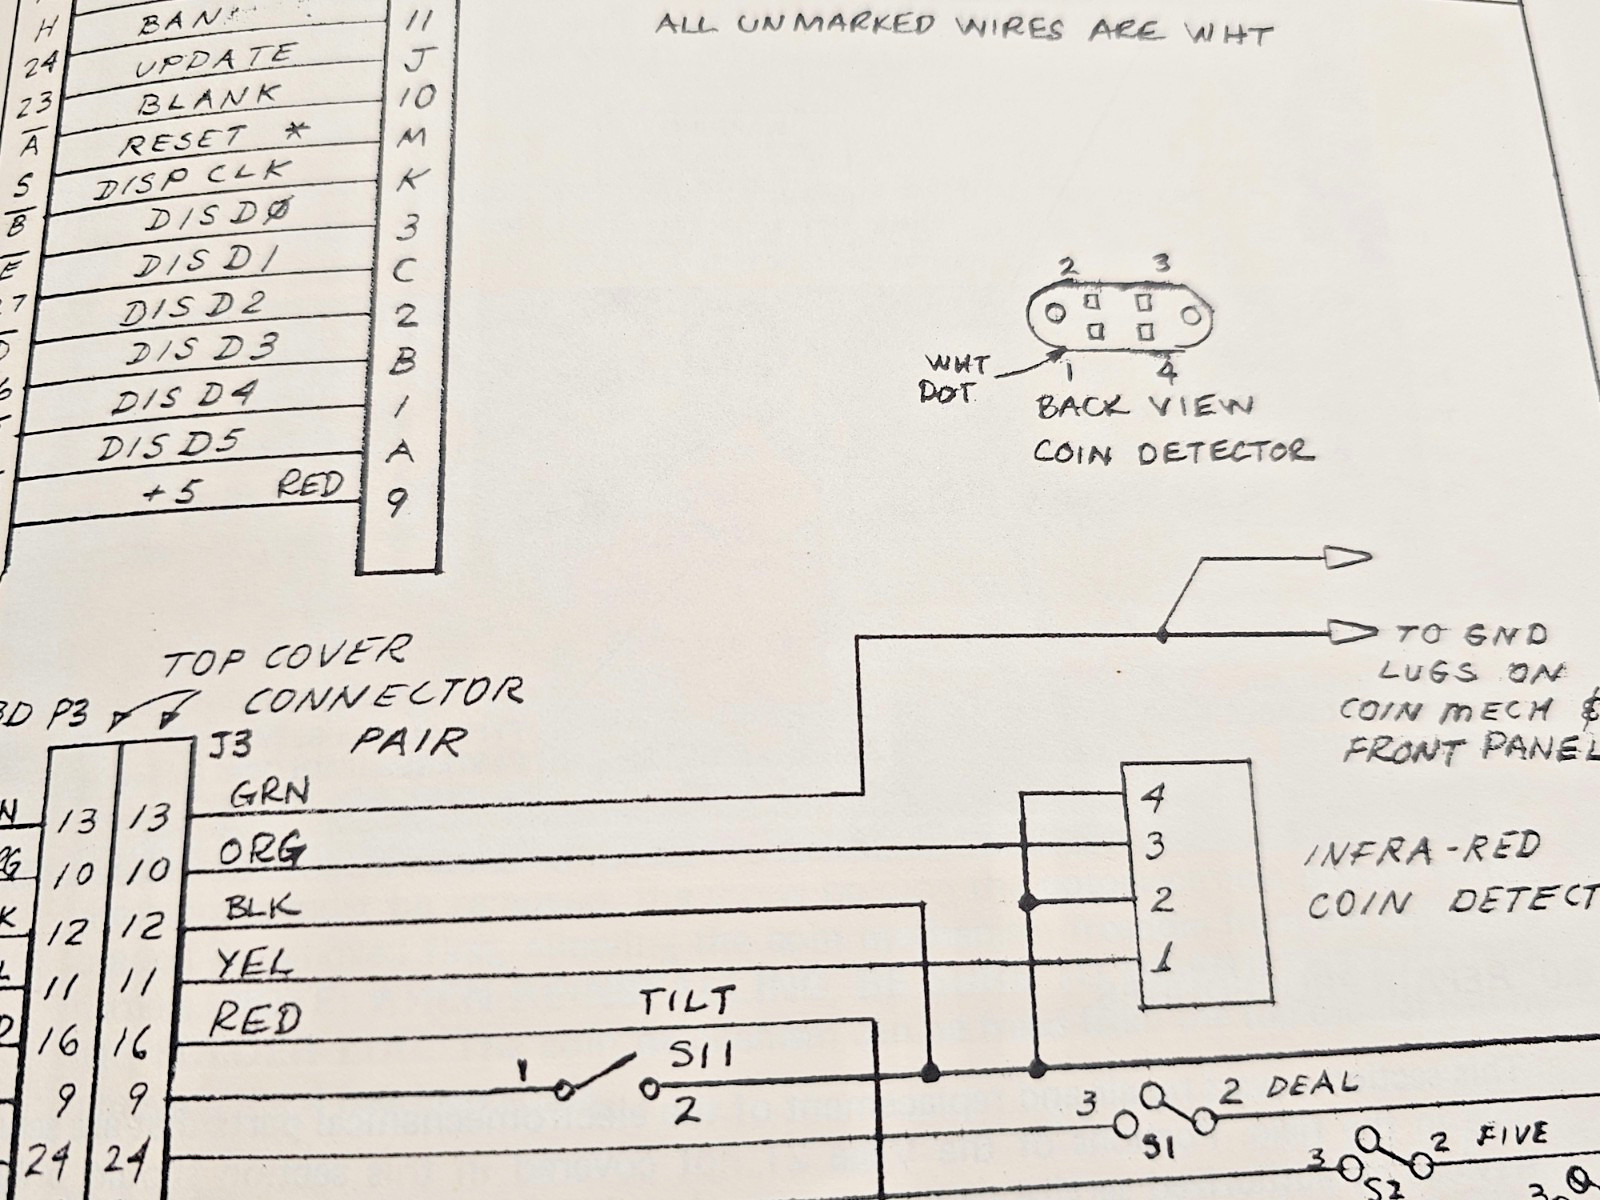 ALL UNMARKED WIRES ARE WHT
H BAN 11
24 UPDATE J
23 BLANK 10
A RESET * M
S DISP CLK K
B DISDØ 3
E DISD1 C
DISD2 2
DISD3 B
DISD4 1
DISD5 A
+5 RED 9
2 3
WHT
DOT
1 4
BACK VIEW
COIN DETECTOR
TO GND
LUGS ON
COIN MECH &
FRONT PANEL
TOP COVER
CONNECTOR
PAIR
P3
J3
13 13 GRN
10 10 ORG
12 12 BLK
11 11 YEL
16 16 RED
9 9
24 24
4
3
2
1
INFRA-RED
COIN DETECT
TILT
S11
1
2
3 S1 2 DEAL
3 S2 2 FIVE
3